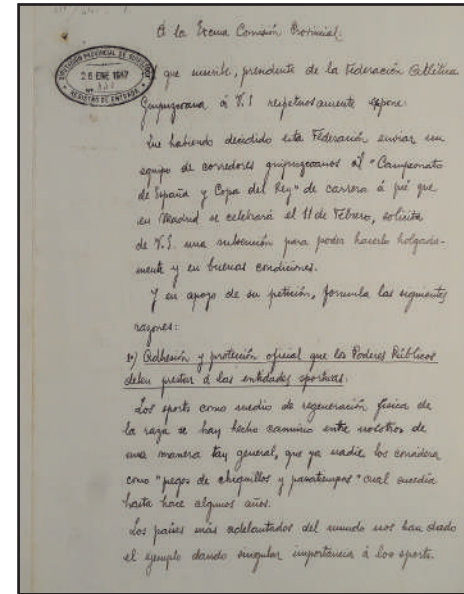 Á la Excma Comisión Provincial:
DIPUTACIÓN PROVINCIAL DE
26 ENE 1917
REGISTRO DE ENTRADA
que suscribe, presidente de la Federación Atlética
Guipuzcoana á V.S respetuosamente expone:
Que habiendo decidido esta Federación enviar un
equipo de corredores guipuzcoanos al "Campeonato
de España y Copa del Rey" de carrera á pié que
en Madrid se celebrará el 11 de Febrero, solicita
de V.S. una subvención para poder hacerlo holgada-
mente y en buenas condiciones.
Y en apoyo de su petición, formula las siguientes
razones:
1º) Adhesión y protección oficial que los Poderes Públicos
deben prestar á las entidades sportivas.
Los sports como medio de regeneración física de
la raza se han hecho camino entre nosotros de
una manera tan general, que ya nadie los considera
como "juegos de chiquillos y pasatiempos" cual sucedía
hasta hace algunos años.
Los países más adelantados del mundo nos han dado
el ejemplo dando singular importancia á los sports.